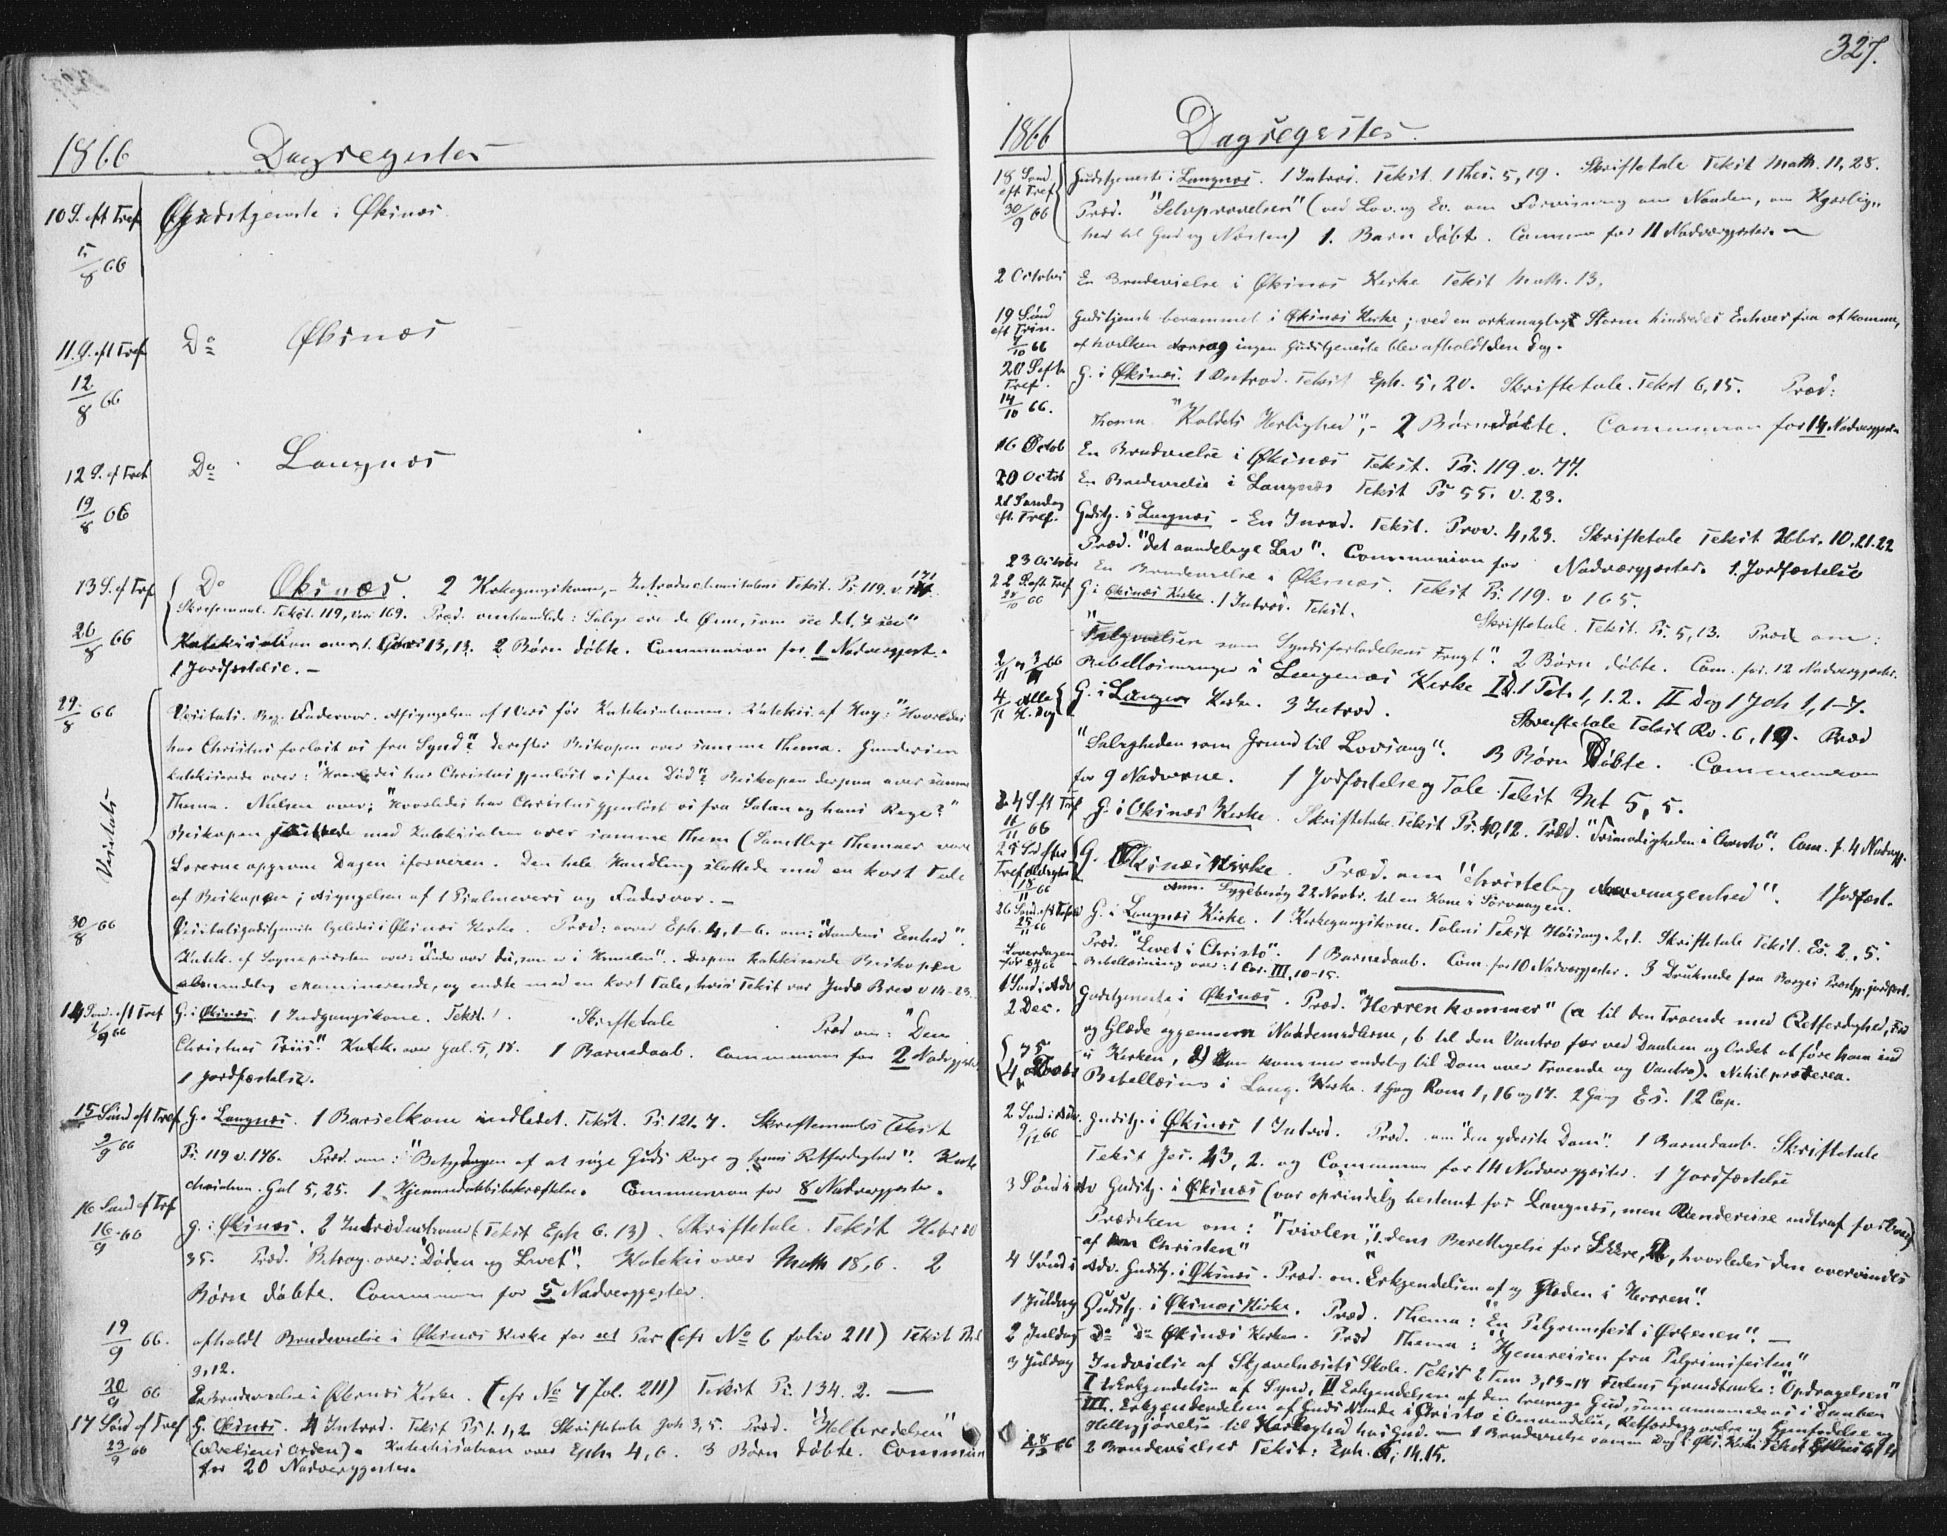 1866 Dagregister
10 S. eft Tref Gudstjeneste i Øksnæs.
5/8 66
11 S. eft Tref Do Øksnæs
12/8 66
12 S. ef Tref Do Langnæs
19/8 66
13 S. ef Tref Do Øksnæs. 2 Kirkegangskoner, - Introductionstalens Tekst. Ps. 119. v. 171.
Skriftemaal. Tekst. 119, vers 169. Præd. omhandlede: Salige ere de Øine, som see det, I see"
26/8 66 Katekisation 13, 13. 2 Børn døbte. Communion for 1 Nadvergjest.
1 Jordfæstelse. -
29/8 66 Visitats. Beg. Fadervor. Afsyngelsen af 1 Vers før Katekisationen. Katekis. af Hog: "Hvorledes
har Christus forløst os fra Synd"? derefter Biskopen over samme Thema. Gundersen
katekiserede over: "Hvorledes har Christus gjenløst os fra Død"? Biskopen derpaa over samme
Thema. Nielsen over; "Hvorledes har Christus gjenløst os fra Satan og hans Rige?"
Visitats
Biskopen sluttede med Katekisation over samme Them (Samtlige Themaer vare
Lærerne opgivne Dagen iforveien. Den hele Handling sluttede med en kort Tale
af Biskopen; Afsyngelsen af 1 Psalmevers og Fadervor. -
30/8 66 Visitatsgudstjeneste ligeledes i Øksnæs Kirke. Præd: over Eph. 4, 1-6. om: "Aandens Eenhed".
Katek. af Sognepræsten over: "Fader vor du, som er i Himelen". Derpaa katekiserede Biskopen
almindelig examinerende, og endte med en kort Tale, hvis Tekst var Judæ Brev v 14-23.
14 Sønd. eft Tref G. i Øksnæs. 1 Indgangskone. Tekst. Skriftetale Præd om: "Den
2/9 66
Christnes Priis". Katek. over Gal. 5, 18. 1 Barnedaab. Communion for 2 Nadvergjester
1 Jordfæstelse.
15 Sønd eft Tref G. i Langnæs. 1 Barselkone indledet. Tekst. Ps. 121. 7. Skriftemaals Tekst
9/9 66
Ps. 119 v. 176. Præd. om: "Betydningen af at søge Guds Rige og hans Retfærdighed". Kate
chisation. Gal 5, 25. 1 Hjemmedaabsbekræftelse. Communion for 8 Nadvergjester.
16 Sønd ef Tref
16/9 66 G. i Øksnæs. 2 Introd (Tekst Eph 6. 13). Skriftetale. Tekst Hebr 10
35. Præd. Betrag. over: "Døden og Livet". Katekis over Math 18, 6. 2
Børn døbte. Communion for 5 Nadvergjester.
19/9 66. afholdt Brudevielse i Øksnæs Kirke for eet Par (cfr No 6 folio 211) Tekst
9, 12.
20/9 66 En Brudevielse i Øksnæs Kirke. (cfr No 7 Fol. 211) Tekst Ps. 134. 2. —
17 Sønd ef Tref G. Øksnæs. 4 Introd. Tekst Ps. 1. 1, 2 Skriftetale Joh 3, 5. Præd. "Helbredelsen"
23/9 66 Katechisation over Eph. 4, 6. 3 Børn døbte. Communion
for 20 Nadvergjester.
327.
1866 Dagregister
18 Sønd eft Tref 30/9 66 Gudstjeneste i Langnæs. 1 Introd. Tekst. 1 Thes. 5, 19. Skriftetale Tekst Math. 11, 28.
Præd. "Selvprøvelsen" (ved Lov. og Ev. om Forvisning om Naaden, om Kjærlig-
hed til Gud og Næsten) 1. Barn døbt. Commun for 11 Nadvergjester.
2 October En Brudevielse i Øksnæs Kirke Tekst Math. 13,
19 Sønd eft Trin. 7/10 66 Gudstjeneste berammet i Øksnæs Kirke; ved en orkanagtig Storm hindredes Enhver fra at komme,
af hvilken Aarsag ingen Gudstjeneste blev afholdt den Dag.
20 S eft Tref. 14/10 66. G. i Øksnæs. 1 Introd. Tekst Eph. 5, 20. Skriftetale. Tekst 6, 15. Præd:
Thema "Kaldets Herlighed", - 2 Børn døbte. Communion for 14 Nadvergjester
16 Octob En Brudvielse i Øksnæs Tekst. Ps. 119. v. 77.
20 Octob En Brudevielse i Langnæs Tekst Ps 55. v. 23.
21 Søndag eft. Tref. Gudstj. i Langnæs - En Introd. Tekst. Prov. 4, 23. Skriftetale Tekst Hebr. 10, 21. 22
Præd. "det aandelige Liv". Communion for Nadvergjester. 1 Jordfæstelse
23 October En Brudevielse i Øksnæs. Tekst Ps. 119. v 165.
22 S. eft Tref 28/10 66 G. i Øksnæs Kirke. 1 Introd. Tekst. Skriftetale. Tekst. Ps. 5, 13. Præd om:
"Tilgivelsen som Syndsforladelsens Frugt". 2 Børn døbte. Com. for. 12 Nadvergjester.
2/11 og 3/11 66 Bibellæsninger i Langnæs Kirke I D. 1 Pet. 1, 1. 2. II Dag 1 Joh 1, 1-7.
4/11 Alle H. Dag G. i Langnæs Kirke. 3 Introd. Skriftetale Tekst Rv. 6, 19. Præd
"Saligheden som Grund til Lovsang". 3 Børn døbte. Communion
for 9 Nadverne. 1 Jordfæstelse og Tale. Tekst Mt 5, 5.
24 S. eft Tref 11/11 66 G. i Øksnæs Kirke. Skriftetale. Tekst Ps. 40, 12. Præd. "Frimodigheden i Christo". Com. f. 4 Nadvgj.
25 Sd efter Tref 18/11 66 G. Øksnæs Kirke. Præd. om "christelig ". 1 Jordfæst.
Anm. Sygebesøg 22 Novbr. til en Kone i Sørvaagen.
26 Sønd. eft Tref 25/11 66 G. i Langnæs Kirke. 1 Kirkegangskone. Talens Tekst Høisang. 2, 1. Skriftetale Tekst. Es. 2, 5.
Præd. "Livet i Christo". 1 Barnedaab. Com. for 10 Nadvergjester. 3 Druknede fra Borges Præstgj. jordfæst.
Løverdagen Bibellæsning over: 1 Cor. III, 10-15.
1 Sønd i Adv 2 Dec. Gudstjeneste i Øksnæs. Præd. "Herren kommer" (a til den Troende med Retfærdighed, Fred
og Glæde gjennem Naademidlerne, b til den Vantro før ved Daaben og Ordet at føre ham ind
i Kirken, 2) Han kommer endelig til Dom over Troende og Vantro). Nihil præterea.
Bibellæsning i Lang. Kirke. 1 Gang Rom 1, 16 og 17. 2 Gang Es. 12 Cap.
2 Sønd i Adv. 9/12 66 Gudstj. i Øksnæs 1 Introd. Præd. om "den yderste Dom". 1 Barnedaab. Skriftetale
Tekst Jes. 43, 2. og Communion for 14 Nadvergjester. 1 Jordfæstelse
3 Sønd i Adv Gudstj. i Øksnæs (var oprindelig bestemt for Langnæs, men Hindrelse indtraf for )
Prædiken om: "Tvivlen", 1. dens Berettigelse for Sikkre, 2, hvorledes den overvindes
af en Christen"
4 Sønd i Adv. Gudstj. i Øksnæs. Præd. om. "Erkjendelsen af og Glæden i Herren".
1 Juldag Gudstj. i Øksnæs Kirke. Præd. Thema: "En Pilgrimsfest i Ørkenen". —
2 Juldag Do Do Øksnæs Kirken. Præd Thema: "Hjemreisen fra Pilgrimsfesten"
3 Juldag Indvielse af Skjævelnæsets Skole. Tekst 2 Tim 3, 13-17 Talens Grundtanke: "Opdragelsen"
I Erkjendelsen af Synd, II Erkjendelsen af den treenige Gud, som annammedes i Daaben
III. Erkjendelsen af Guds Naade i Christo i Anvendelse, Retfærdiggjørelse og Gjenfødelse og
Helliggjørelse til Herlighed hos Gud. — 1 Brudevielse samme Dag i Øks. Kirke Tekst
28/12 66 2 Brudevielser Tekst: Eph. 6, 14. 15.